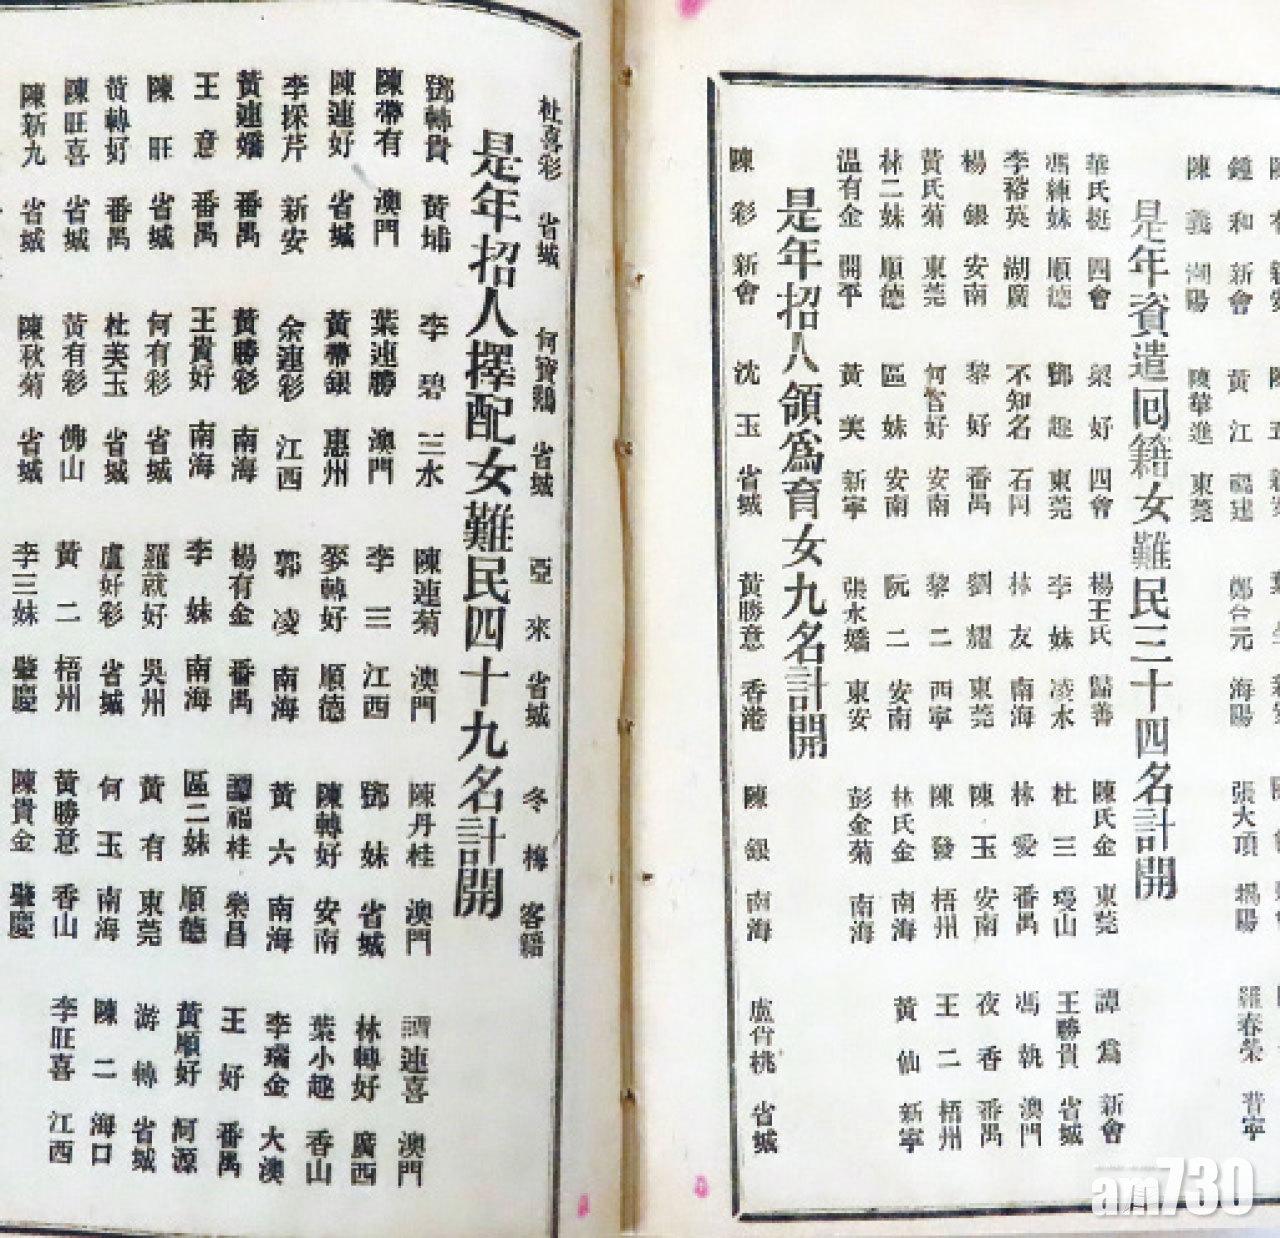 鐘和 新會 黃江 福建 鄭台元 海陽 張大項 揭陽 羅春榮 普寧
陳義 潮陽 陳華進 東莞
是年資遣回籍女難民三十四名計開
華氏娗 四會 梁好 四會 楊王氏 歸善 陳氏金 東莞 譚為 新會
馮練妹 順德 鄧趣 東莞 李妹 凌水 杜三 瓊山 王勝貴 省城
李裕英 湖廣 不知名 石岡 林友 南海 林愛 番禺 馮執 澳門
楊銀 安南 黎好 番禺 劉耀 東莞 陳玉 安南 夜香 番禺
黃氏菊 東莞 安南 黎二 西寧 陳發 梧州 王二 梧州
林二妹 順德 區妹 安南 阮二 安南 林氏金 南海 黃仙 新寧
溫有金 開平 黃美 新寧 張水嬌 東安 彭金菊 南海
是年招人領為育女九名計開
陳彩 新會 沈玉 省城 黃勝意 香港 陳銀 南海 盧省桃 省城
杜喜彩 省城 何寶鵝 省城 亞來 省城 冬梅 客籍
是年招人擇配女難民四十九名計開
鄧轉貴 黃埔 李碧 三水 陳連菊 澳門 陳丹桂 澳門 譚連喜 澳門
陳帶有 澳門 葉連勝 澳門 李三 江西 鄧妹 省城 林轉好 廣西
陳連好 省城 黃帶銀 惠州 麥轉好 順德 陳轉好 安南 葉小趣 香山
李採芹 新安 余連彩 江西 郭凌 南海 黃六 南海 李瑞金 大澳
黃連嬌 番禺 黃勝彩 南海 楊有金 番禺 譚福桂 樂昌 王好 番禺
王意 番禺 王貴好 南海 李妹 南海 區二妹 順德 黃順好 河源
陳旺 省城 何有彩 省城 羅就好 吳州 黃有 東莞 游轉 省城
黃轉好 番禺 杜美玉 省城 盧好彩 省城 何玉 南海 陳二 海口
陳旺喜 省城 黃有彩 佛山 黃二 梧州 黃勝意 香山 李旺喜 江西
陳新九 省城 陳秋菊 省城 李三妹 肇慶 陳貴金 肇慶
am730